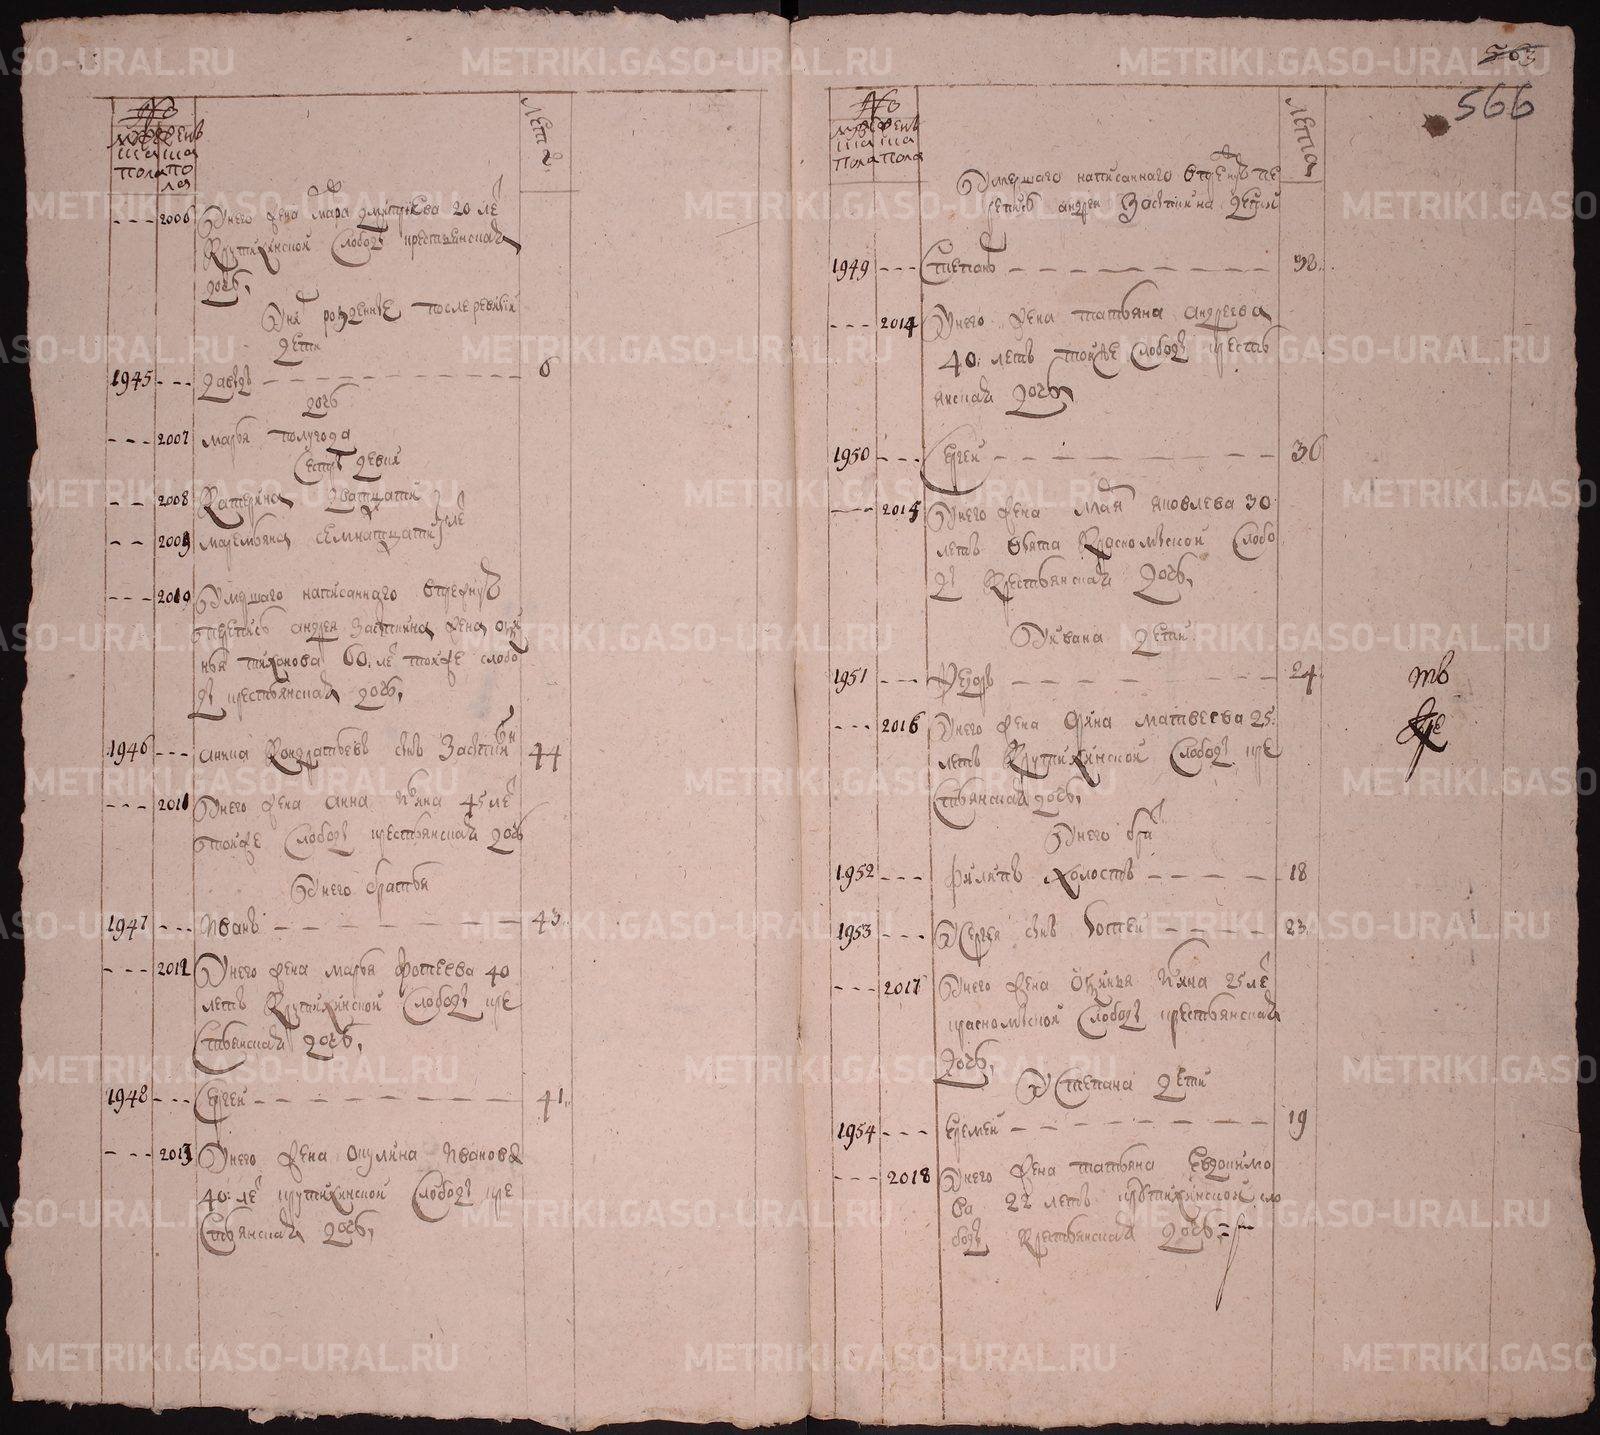 №
мужеска пола
женска пола
лета
2006 У него жена Марфа Дмитриева 20 ле
Крутихинской слободы крестьянская
дочь,
У них рожденные после ревизии
дети
1945 Давыд 6
дочь
2007 Марья полугода
сестры девки
2008 Катерина дватцати
2009 Маремьяна семнатцати лет
2010 Умершаго написаннаго в прежнюю
перепись Андрея Заспина жена
Тиханова 60 ле той же слобо
ды крестьянская дочь,
1946 Кондратьев сын 44
2011 У него жена Анна Ивана 45 ле
той же слободы крестьянская дочь
У него братья
1947 Иван 43
2012 У него жена Марья Фотеева 40
лет Крутихинской слободы кре
стьянская дочь,
1948 Сергей 41
2013 У него жена Окулина Иванова
40 ле Крутихинской слободы кре
стьянская дочь,
563
566
№
мужеска пола
женска пола
лета
Умершаго написаннаго в прежнюю пе
репись Андрея Заспина дети
1949 Степан 38
2014 У него жена Татьяна Андреева
40 лет той же слободы кресть
янская дочь
1950 Сергей 36
2015 У него жена Яковлева 30
лет взята слобо
ды крестьянская дочь,
У Ивана дети
1951 Федор 24
2016 У него жена Матвеева 25
лет Крутихинской слободы кре
стьянская дочь,
У него бра
1952 Филип холост 18
1953 У Сергея сын Фотей 23
2017 У него жена Ивана 25 ле
слободы крестьянская
дочь,
У Степана дети
1954 Еремей 19
2018 У него жена Татьяна Евдокимо
ва 22 лет Крутихинской сло
боды крестьянская дочь
METRIKI.GASO-URAL.RU